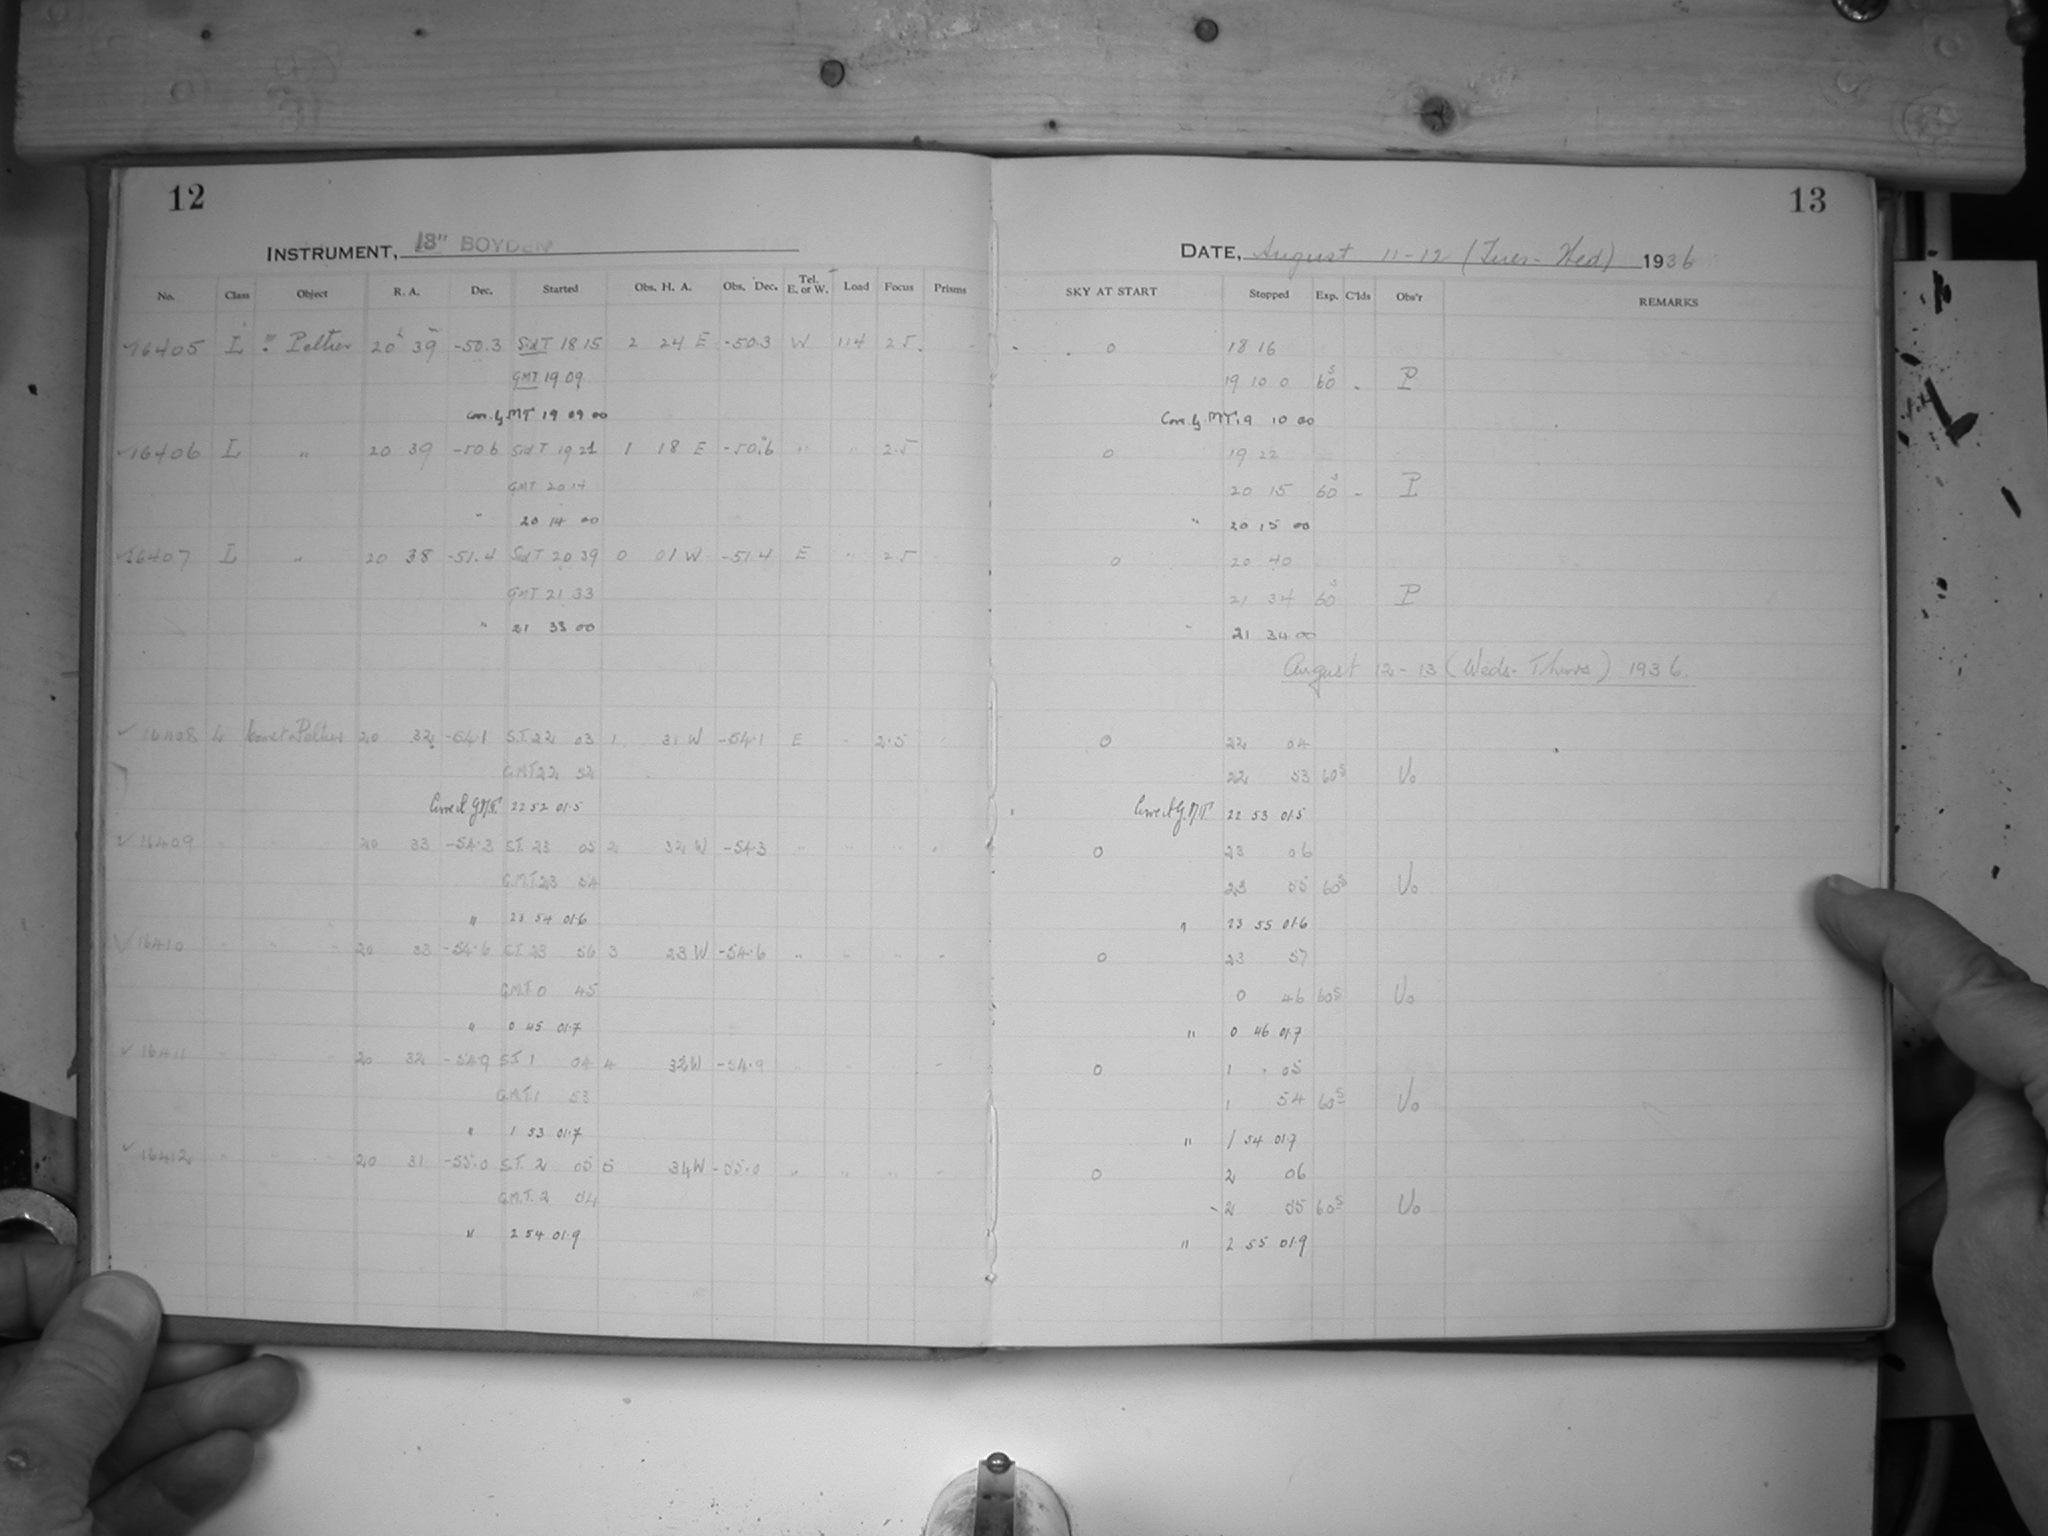 12
INSTRUMENT, 13" BOYDEN
No. Class Object R. A. Dec. Started Obs. H. A. Obs. Dec. Tel. E. or W. Load Focus Prisms
16405 L Peltier 20h 39m -50.3 Sid T 18 15 2 24 E -50.3 W 114 2.5
GMT 19 09
Corr. G MT 19 09 00
16406 L " 20 39 -50.6 Sid T 19 21 1 18 E -50.6 " " 2.5
GMT 20 14
" 20 14 00
16407 L " 20 38 -51.4 Sid T 20 39 0 01 W -51.4 E " 2.5
GMT 21 33
" 21 33 00
16408 L Comet Peltier 20 32 -54.1 S.T. 22 03 1 31 W -54.1 E " 2.5
G.M.T. 22 52
Correct G.M.T. 22 52 01.5
16409 " " " 20 33 -54.3 S.T. 23 05 2 32 W -54.3 " " " "
G.M.T. 23 54
" 23 54 01.6
16410 " " " 20 33 -54.6 S.T. 23 56 3 23 W -54.6 " " " "
G.M.T. 0 45
" 0 45 01.7
16411 " " " 20 32 -54.9 S.T. 1 04 4 32 W -54.9 " " " "
G.M.T. 1 53
" 1 53 01.7
16412 " " " 20 31 -55.0 S.T. 2 05 5 34 W -55.0 " " " "
G.M.T. 2 54
" 2 54 01.9
13
DATE, August 11-12 (Tues-Wed) 1936
SKY AT START Stopped Exp. C'lds Obs'r REMARKS
0 18 16
19 10 0 60s - P
Corr. G MT 19 10 00
0 19 22
20 15 60s - P
" 20 15 00
0 20 40
21 34 60s P
" 21 34 00
August 12-13 (Weds-Thurs) 1936.
0 22 04
22 53 60s Vo
Correct G.M.T. 22 53 01.5
0 23 06
23 55 60s Vo
" 23 55 01.6
0 23 57
0 46 60s Vo
" 0 46 01.7
0 1 05
1 54 60s Vo
" 1 54 01.7
0 2 06
2 55 60s Vo
" 2 55 01.9